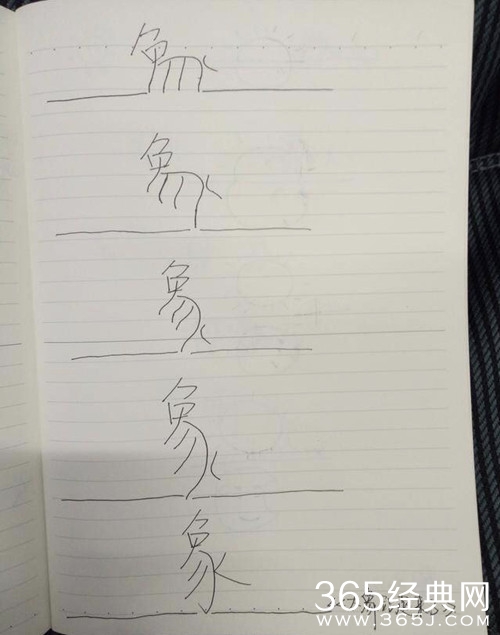 象
象
象
象
象
365经典网
WWW.365J.COM